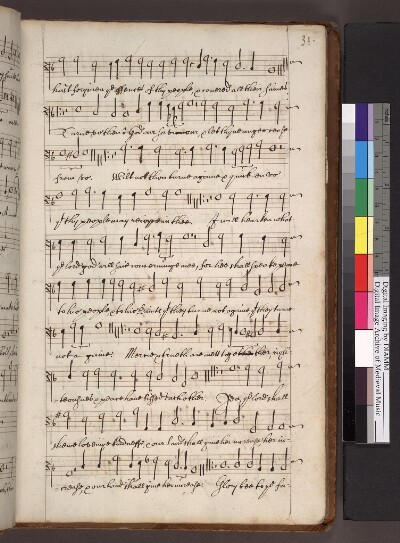 31.
hast forgiven ye offences of thy people, & covered all their sinnes
Turne us then o God our saviour, & let thyne anger cease
from us. Wilt not thou turne againe & quicken us
yt thy people may rejoyce in thee. I will hearken what
ye lord god will saie concerninge mee, for hee shall speake peace
to his people & to his Saints yt they turne not againe yt they turne
not againe. Mercye & trueth are mett together, her righ-
teousnes & peace have kissed each other. Yea ye lord shall
shewe lovinge kindness & our land shall give her increase her in-
crease, & our land shall give her increase. Glory bee to ye fa-
Digital Imaging by DIAMM
Digital Image Archive of Medieval Music